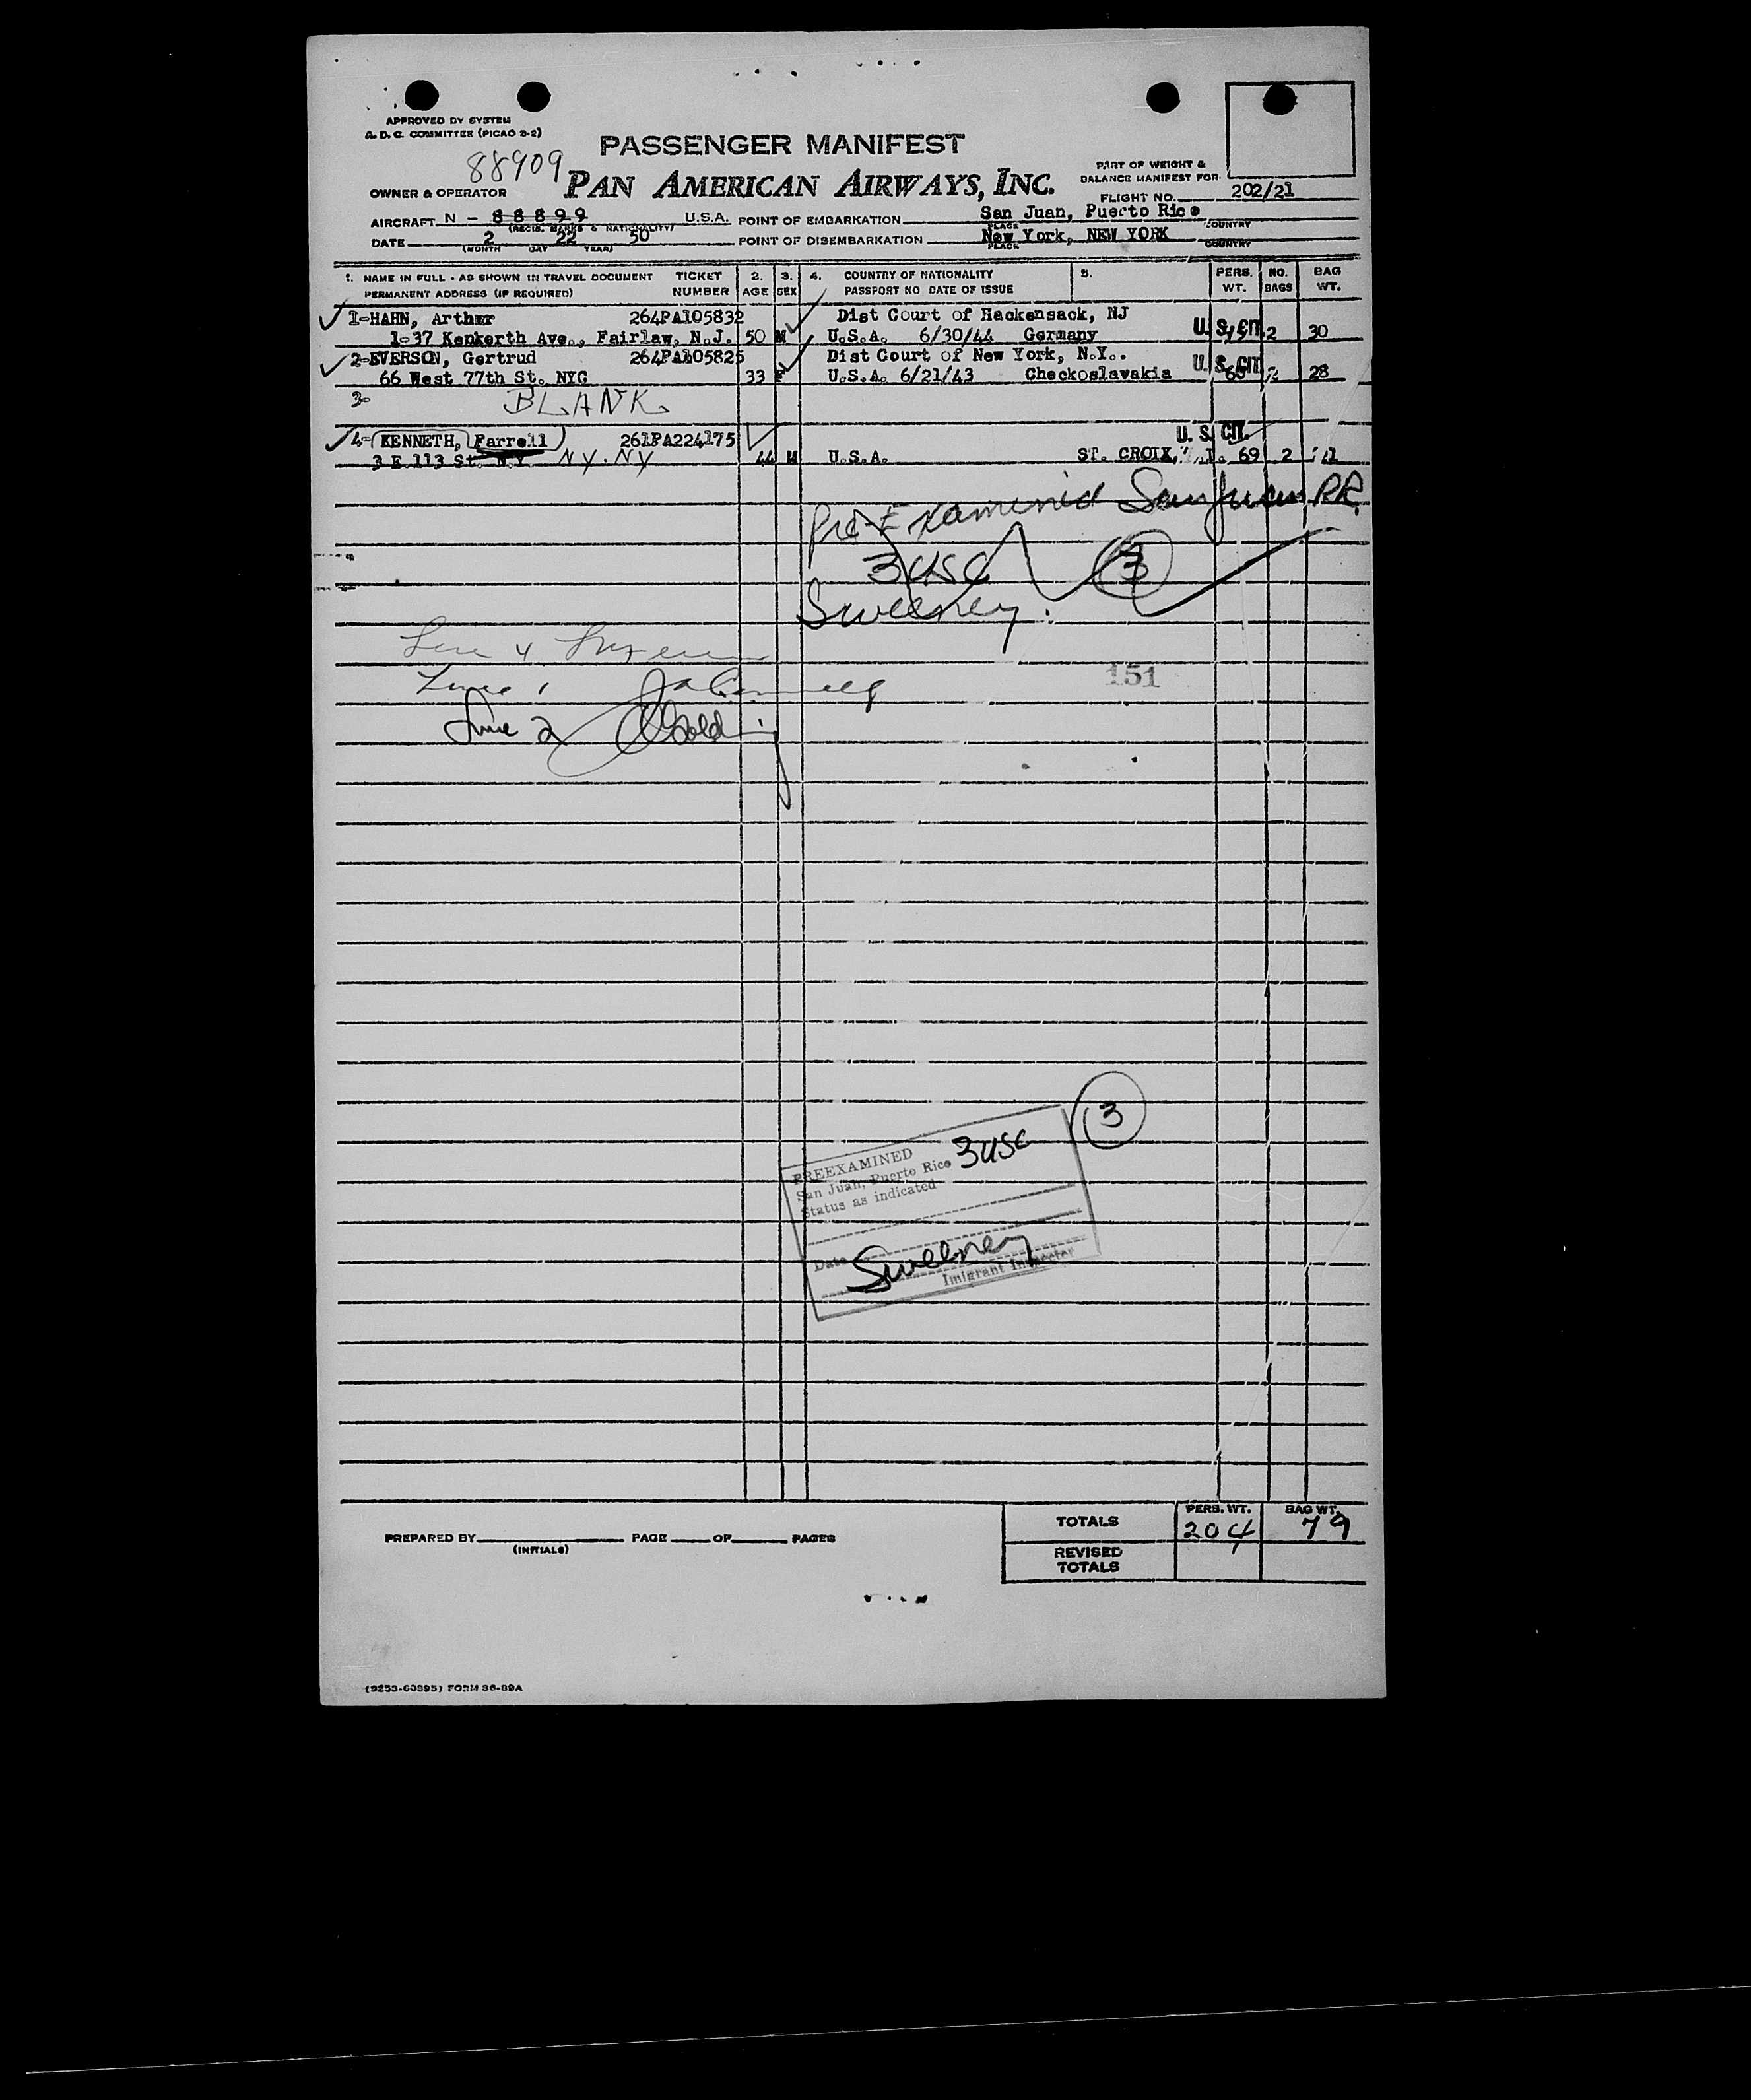 APPROVED BY SYSTEM
A. D. C. COMMITTEE (PICAO 2-2)
PASSENGER MANIFEST
88909
OWNER & OPERATOR PAN AMERICAN AIRWAYS, INC.
PART OF WEIGHT &
BALANCE MANIFEST FOR
FLIGHT NO. 202/21
AIRCRAFT N - 88899 U.S.A. POINT OF EMBARKATION San Juan, Puerto Rico
(REGIS. MARKS & NATIONALITY) PLACE COUNTRY
DATE 2 22 50 POINT OF DISEMBARKATION New York, NEW YORK
(MONTH DAY YEAR) PLACE COUNTRY
1. NAME IN FULL - AS SHOWN IN TRAVEL DOCUMENT TICKET 2. 3. 4. COUNTRY OF NATIONALITY 5. PERS. NO. BAG
PERMANENT ADDRESS (IF REQUIRED) NUMBER AGE SEX PASSPORT NO DATE OF ISSUE WT. BAGS WT.
1-HAHN, Arthur 264PA105832 Dist Court of Hackensack, NJ
1-37 Kenkerth Ave., Fairlaw, N.J. 50 M U.S.A. 6/30/44 Germany U. S. CIT. 2 30
2-EVERSON, Gertrud 264PA105825 Dist Court of New York, N.Y..
66 West 77th St. NYC 33 F U.S.A. 6/21/43 Checkoslavakia U. S. CIT. 2 28
3- BLANK
4- KENNETH, Farrell 261PA224175 U. S. CIT.
3 E 113 St. N.Y. NY. NY 44 M U.S.A. ST. CROIX, 69 2
Pre-Examined San Juan PR
3 USC 3
Sweeney
Line 4
Line 1
151
Line 2
3
PREEXAMINED 3 USC
San Juan, Puerto Rico
Status as indicated
Date Sweeney
Imigrant Inspector
PERS. WT. BAG WT.
TOTALS 204 79
PREPARED BY PAGE OF PAGES
(INITIALS)
REVISED
TOTALS
(9253-60895) FORM 36-89A